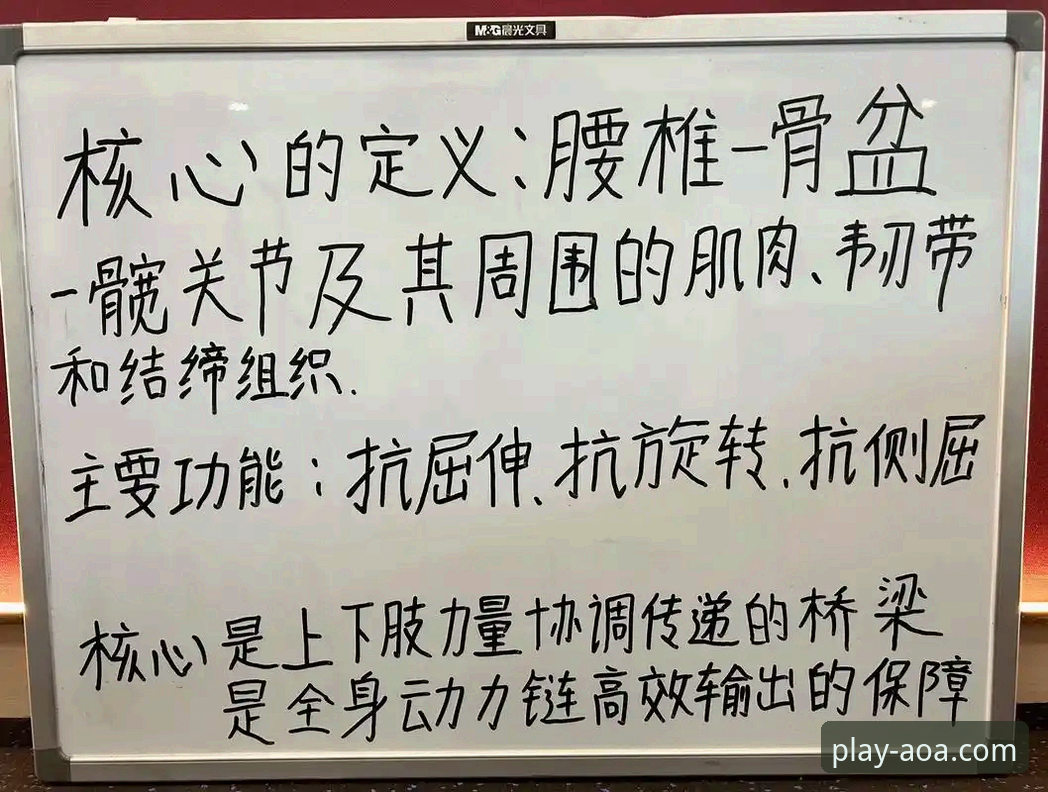 M&G晨光文具
核心的定义:腰椎-骨盆
-髋关节及其周围的肌肉、韧带
和结缔组织.
主要功能:抗屈伸、抗旋转、抗侧屈
核心是上下肢力量协调传递的桥梁
是全身动力链高效输出的保障
play-aoa.com